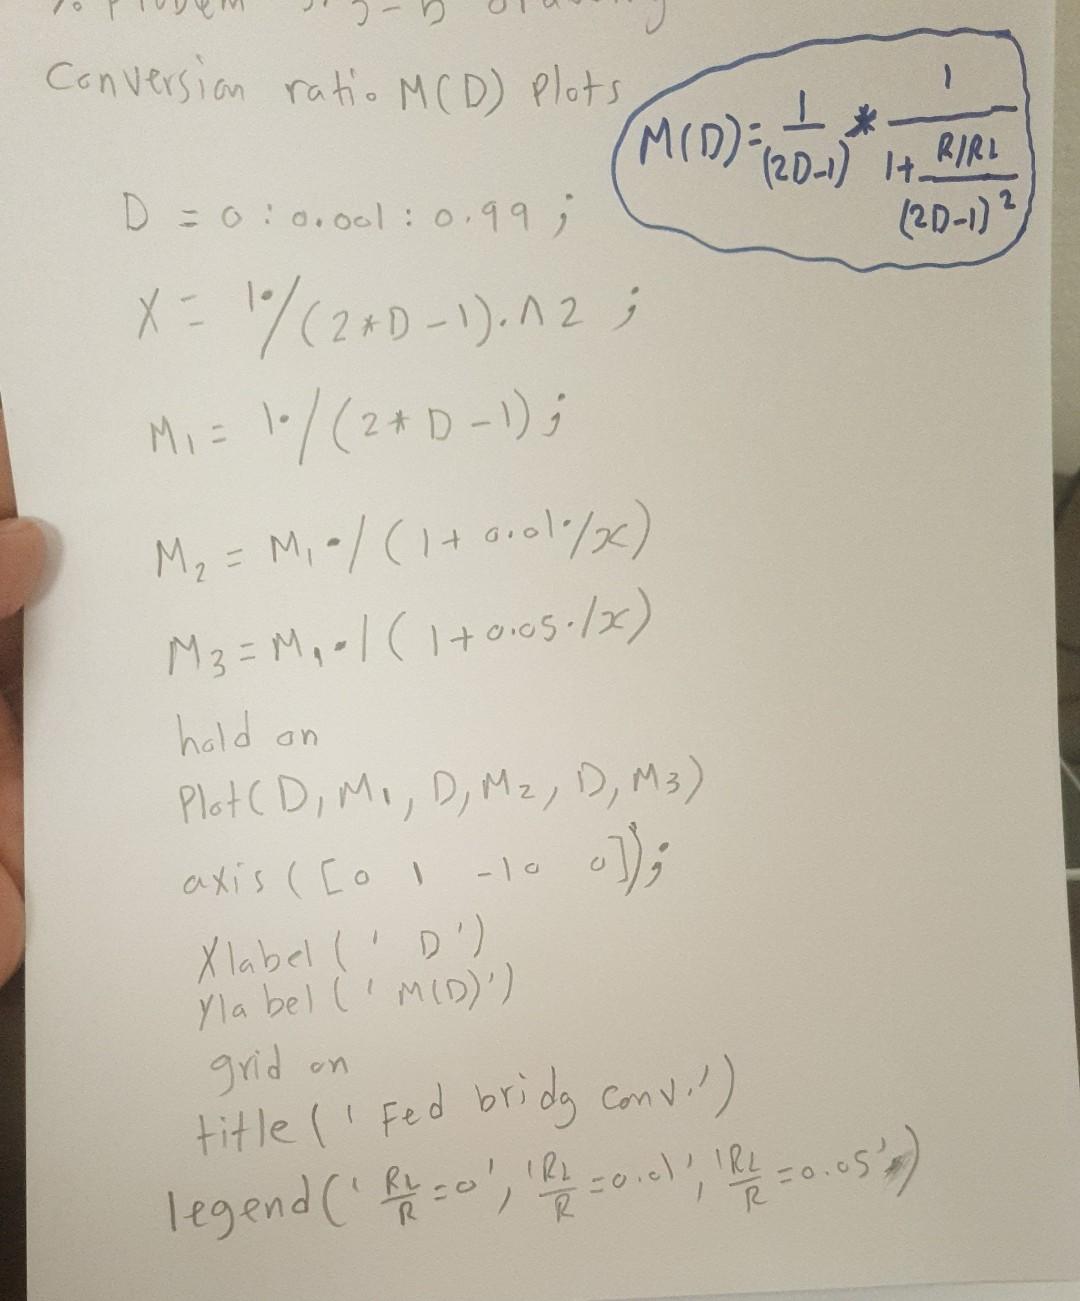 % Problem
Conversion ratio M(D) Plots
M(D) = 1/(2D-1) * 1/(1+ (R/RL)/(2D-1)^2)
D = 0 : 0.001 : 0.99 ;
X = 1./(2*D-1).^2 ;
M1 = 1./(2*D-1) ;
M2 = M1./(1+0.01./x)
M3 = M1./(1+0.05./x)
hold on
Plot(D, M1, D, M2, D, M3)
axis([0 1 -10 0]);
Xlabel(' D')
Ylabel(' M(D)')
grid on
title(' Fed bridg conv.')
legend(' RL/R = 0', 'RL/R = 0.01', 'RL/R = 0.05')